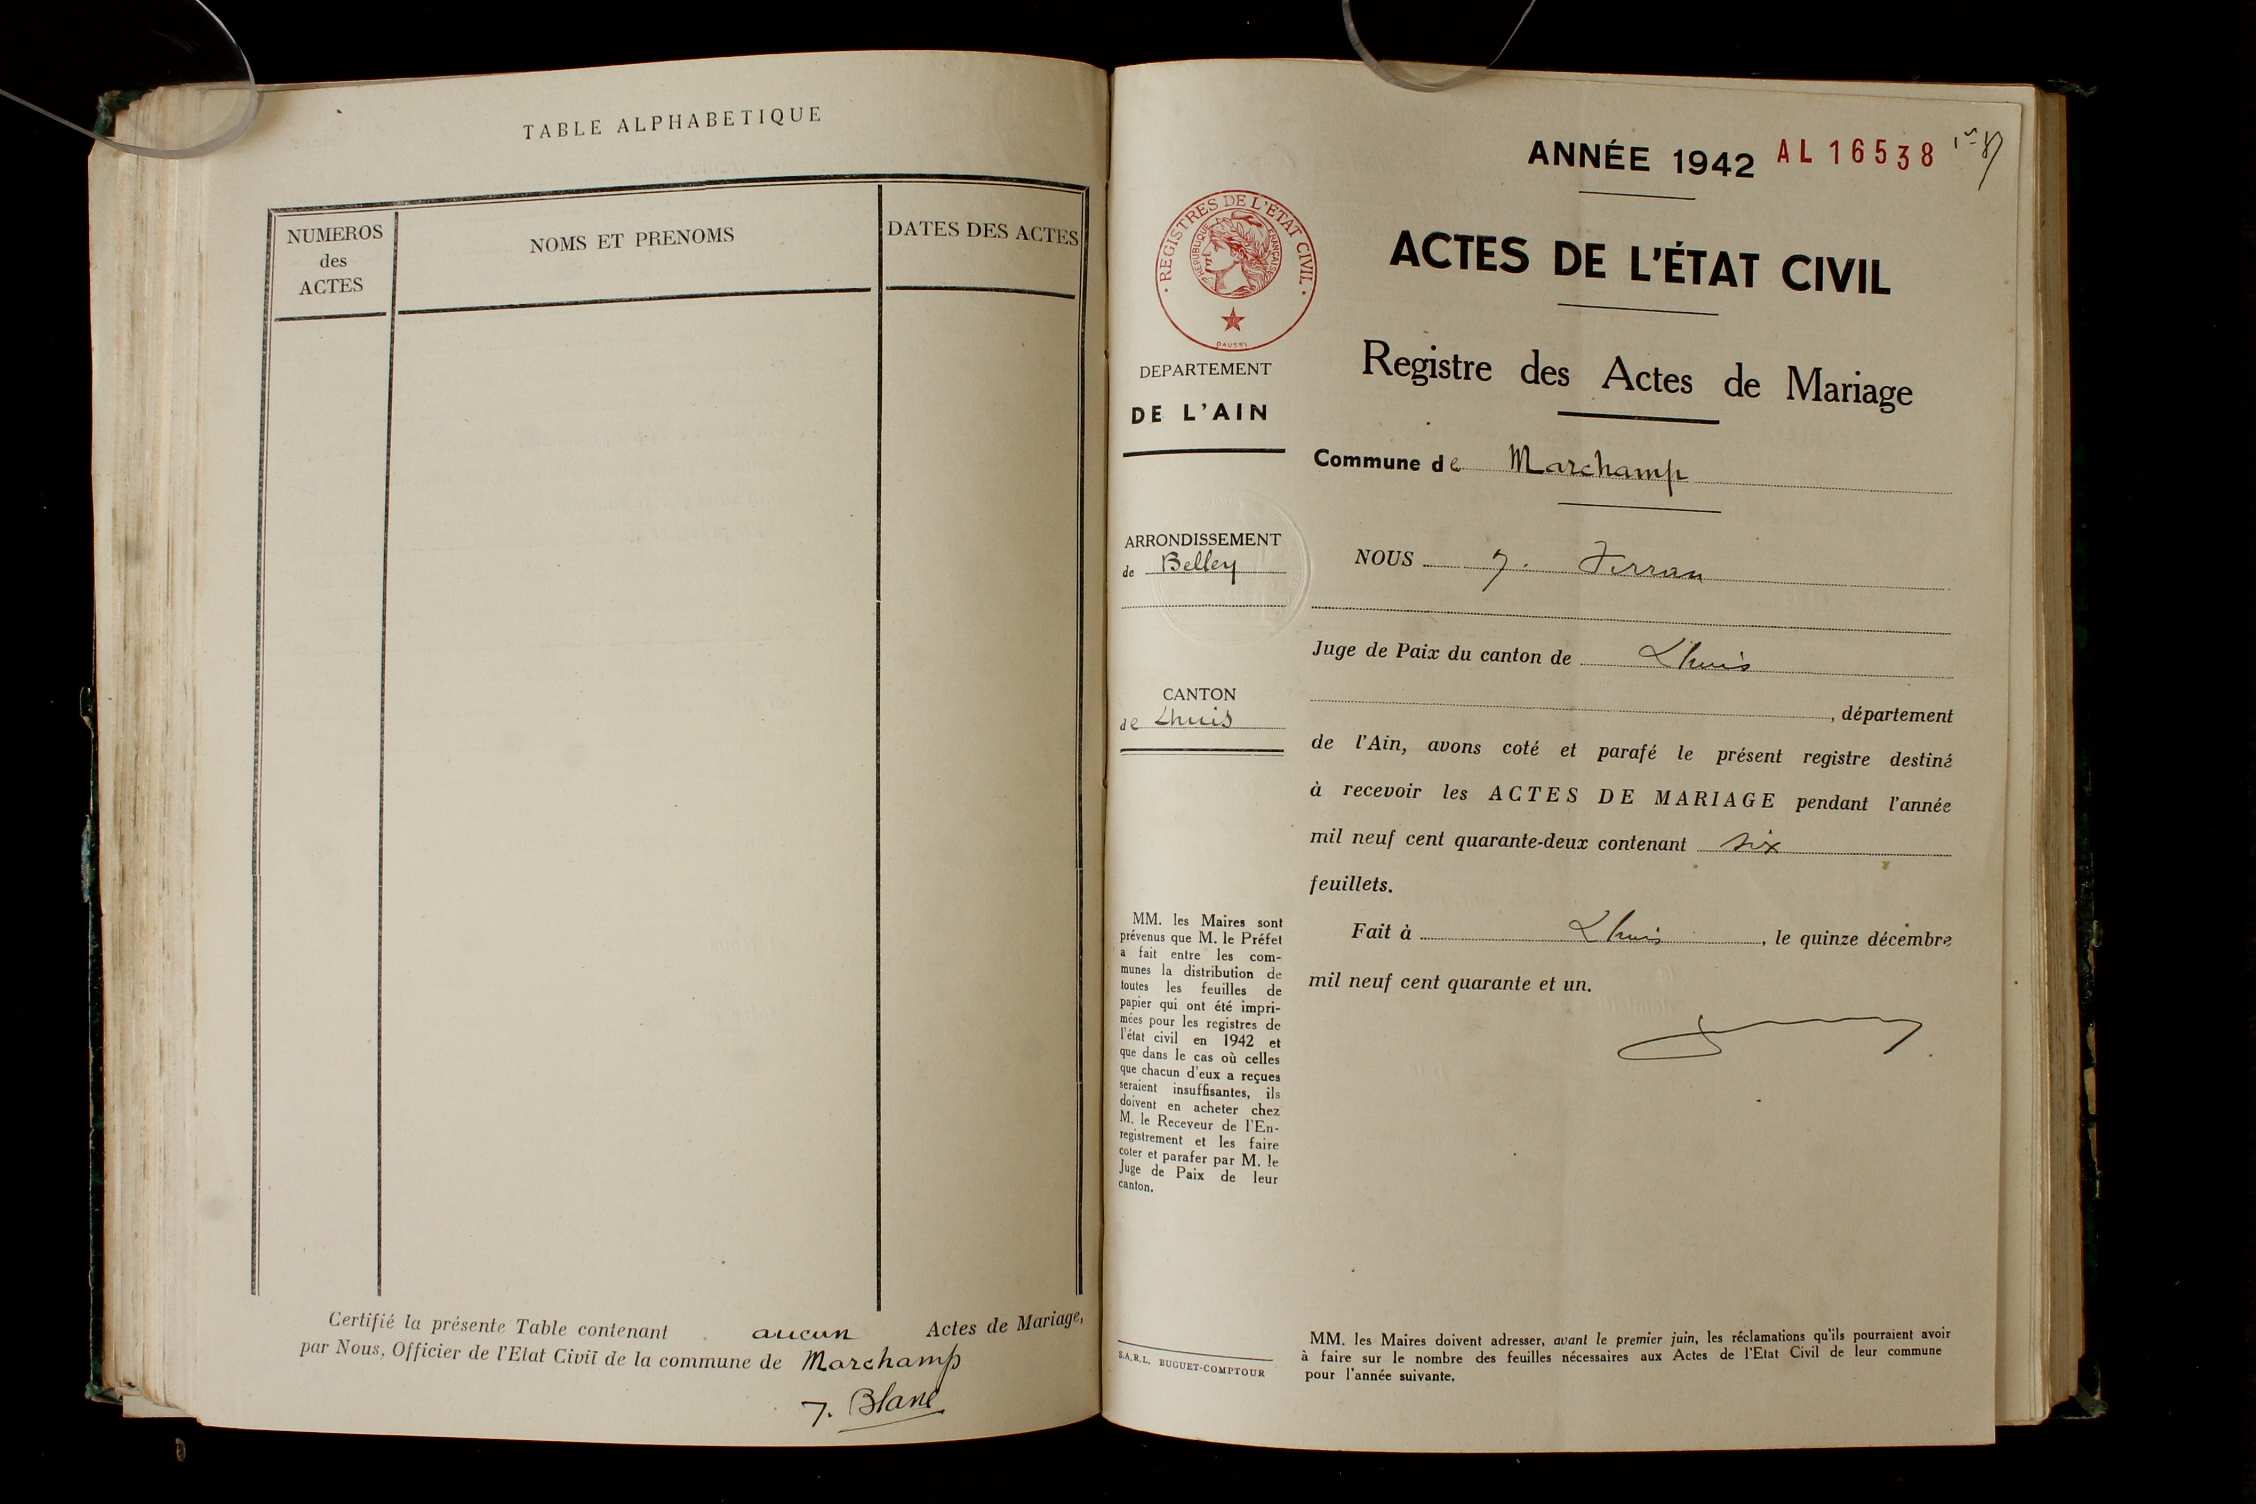 TABLE ALPHABETIQUE
NUMEROS
des
ACTES
NOMS ET PRENOMS
DATES DES ACTES
Certifié la présente Table contenant aucun Actes de Mariage,
par Nous, Officier de l'Etat Civil de la commune de Marchamp
J. Blanc
ANNÉE 1942 AL 16538
REGISTRES DE L'ÉTAT CIVIL
RÉPUBLIQUE FRANÇAISE
DAUSSY
ACTES DE L'ÉTAT CIVIL
Registre des Actes de Mariage
DEPARTEMENT
DE L'AIN
Commune de Marchamp
ARRONDISSEMENT
de Belley
CANTON
de Lhuis
NOUS J. Ferran
Juge de Paix du canton de Lhuis
, département
de l'Ain, avons coté et parafé le présent registre destiné
à recevoir les ACTES DE MARIAGE pendant l'année
mil neuf cent quarante-deux contenant six
feuillets.
Fait à Lhuis, le quinze décembre
mil neuf cent quarante et un.
MM. les Maires sont
prévenus que M. le Préfet
a fait entre les com-
munes la distribution de
toutes les feuilles de
papier qui ont été impri-
mées pour les registres de
l'état civil en 1942 et
que dans le cas où celles
que chacun d'eux a reçues
seraient insuffisantes, ils
doivent en acheter chez
M. le Receveur de l'En-
registrement et les faire
coter et parafer par M. le
Juge de Paix de leur
canton.
S.A.R.L. BUGUET-COMPTOUR
MM. les Maires doivent adresser, avant le premier juin, les réclamations qu'ils pourraient avoir
à faire sur le nombre des feuilles nécessaires aux Actes de l'Etat Civil de leur commune
pour l'année suivante.